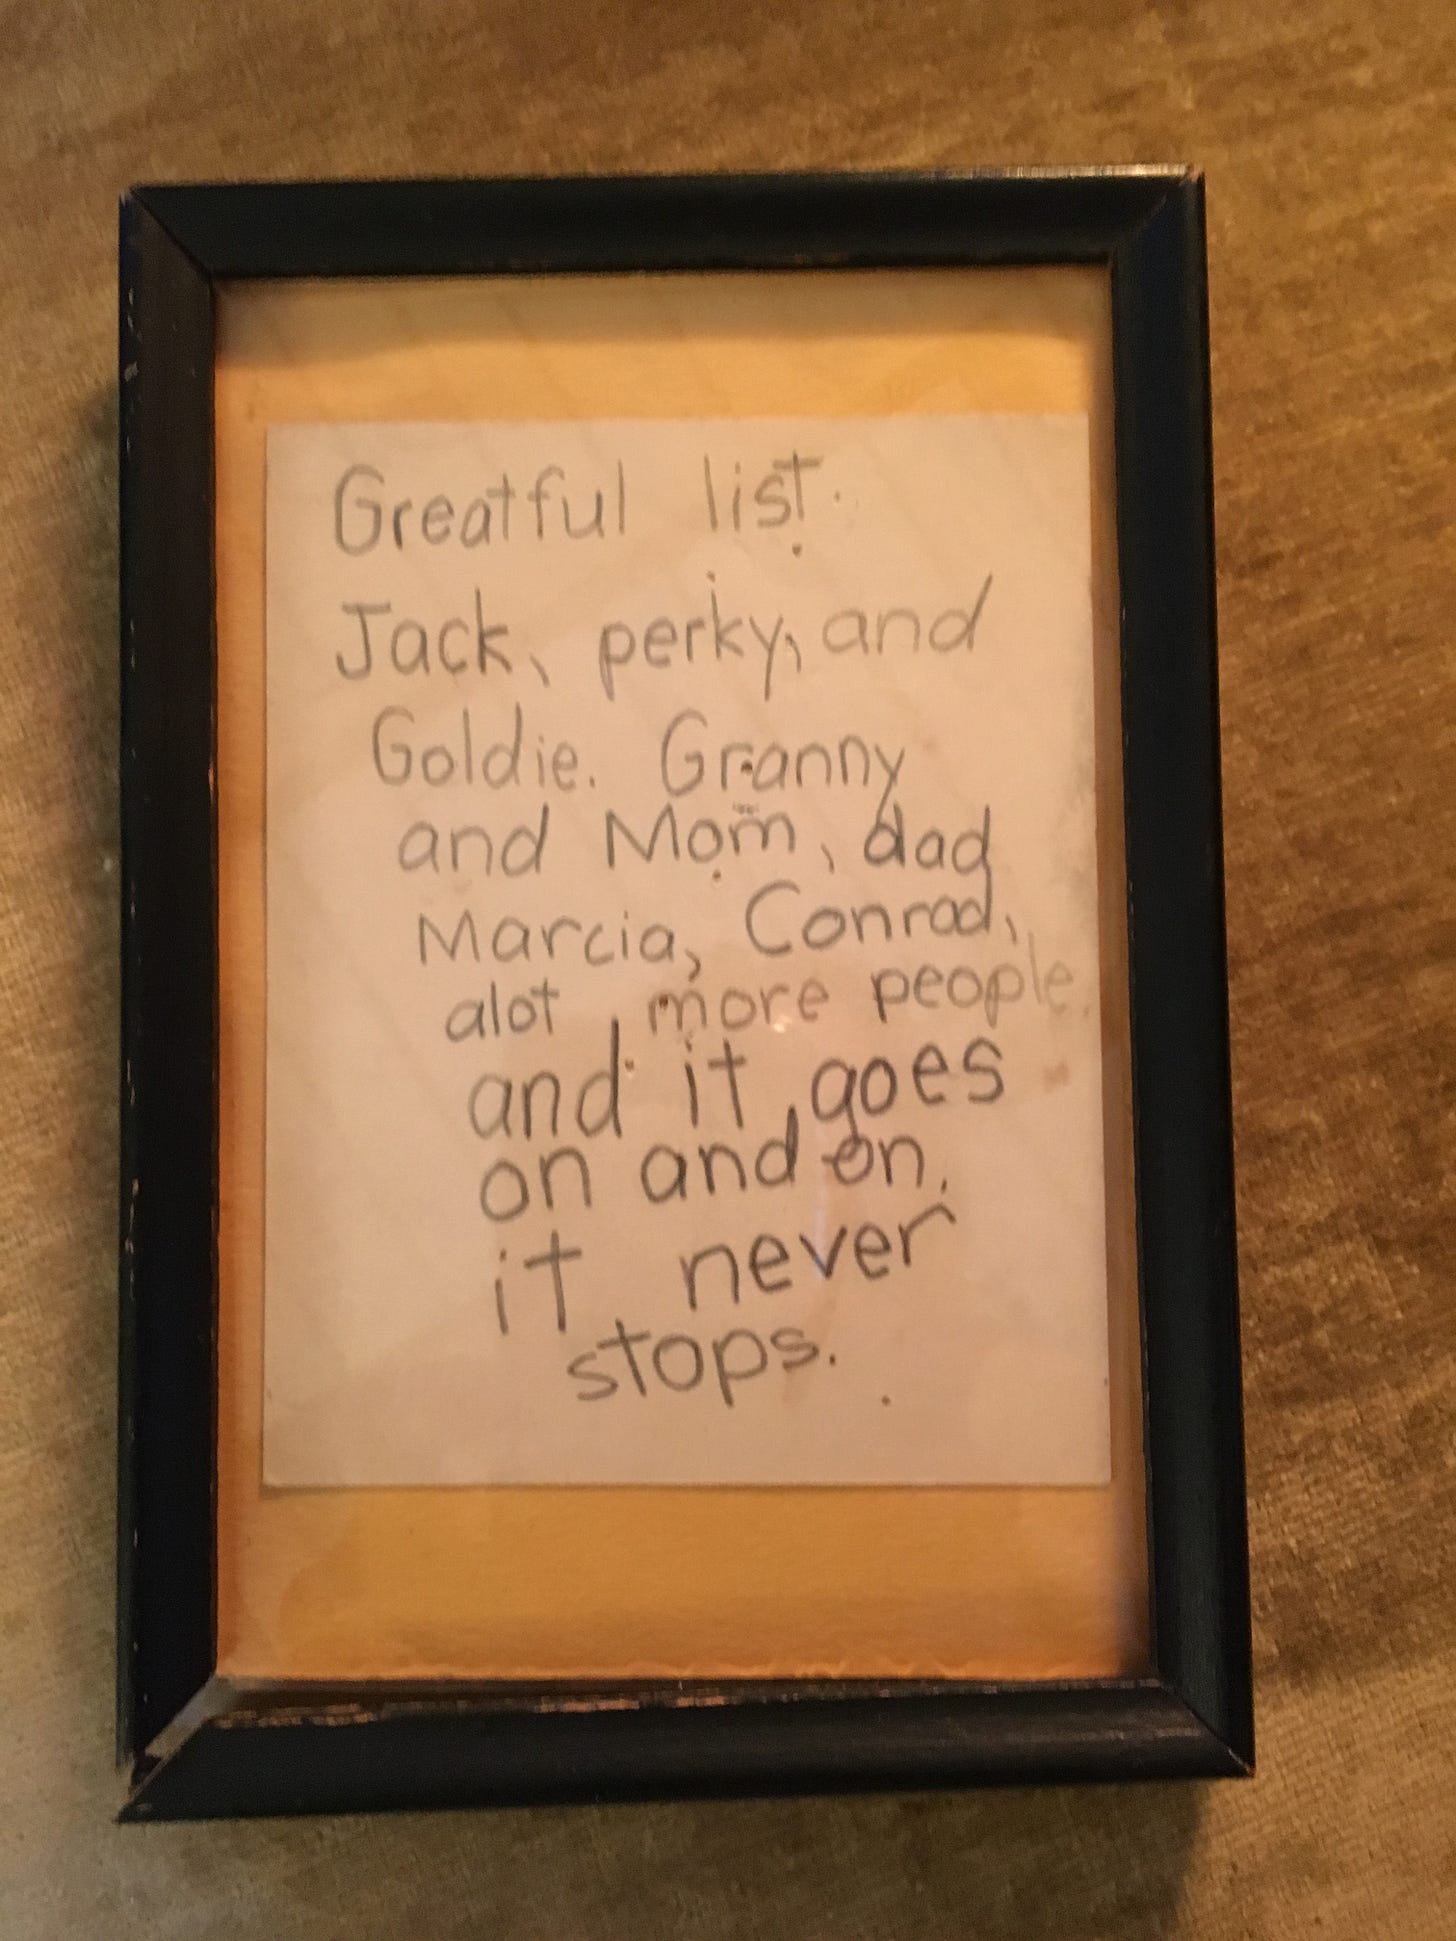 Greatful list.
Jack, perky, and
Goldie. Granny
and Mom, dad
Marcia, Conrad,
alot, more people.
and it, goes
on and on.
it never
stops.